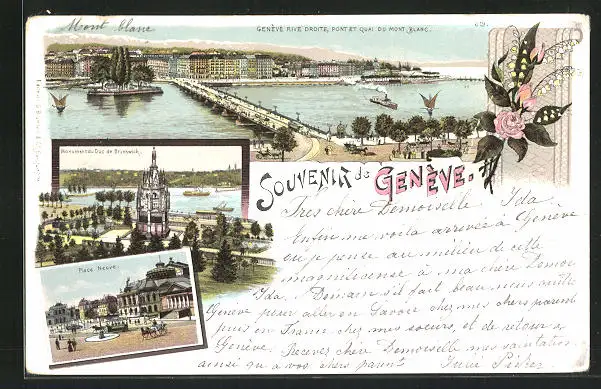 Mont blanc
GENÈVE RIVE DROITE, PONT ET QUAI DU MONT BLANC.
Monument du Duc de Brunswick.
Place Neuve
SOUVENIR de GENÈVE.
Tres chère Demoiselle Ida
Enfin me voila arrevée à Genève
ou je pense au mélieu de cette
magnifisense à ma chère Demoi
Ida. Demain s'il fait beau nous
Genève pour aller en Savoie chez mes chers parent
puis en France chez mes soeurs, et de retour a
Genève. Recevez chère Demoiselle mes salutation
ainsi qu a vos chers parent